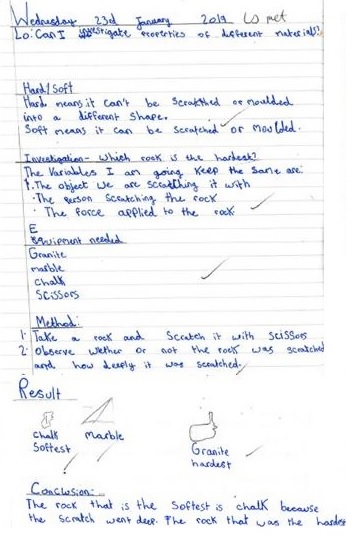 Wednesday 23rd January 2019 LO met
Lo: Can I investigate properties of different materials?
Hard/Soft
Hard means it can't be scratched or moulded
into a different shape.
Soft means it can be scratched or moulded.
Investigation - Which rock is the hardest?
The variables I am going keep the same are:
1. The object we are scratching it with
· The person scratching the rock
· The force applied to the rock
E
equipment needed
Granite
marble
chalk
Scissors
Method:
1. Take a rock and scratch it with scissors
2. Observe wether or not the rock was scratched
and how deeply it was scratched.
Result
chalk marble
Softest
Granite
hardest
Conclusion:
The rock that is the softest is chalk because
the scratch went deep. The rock that was the hardest